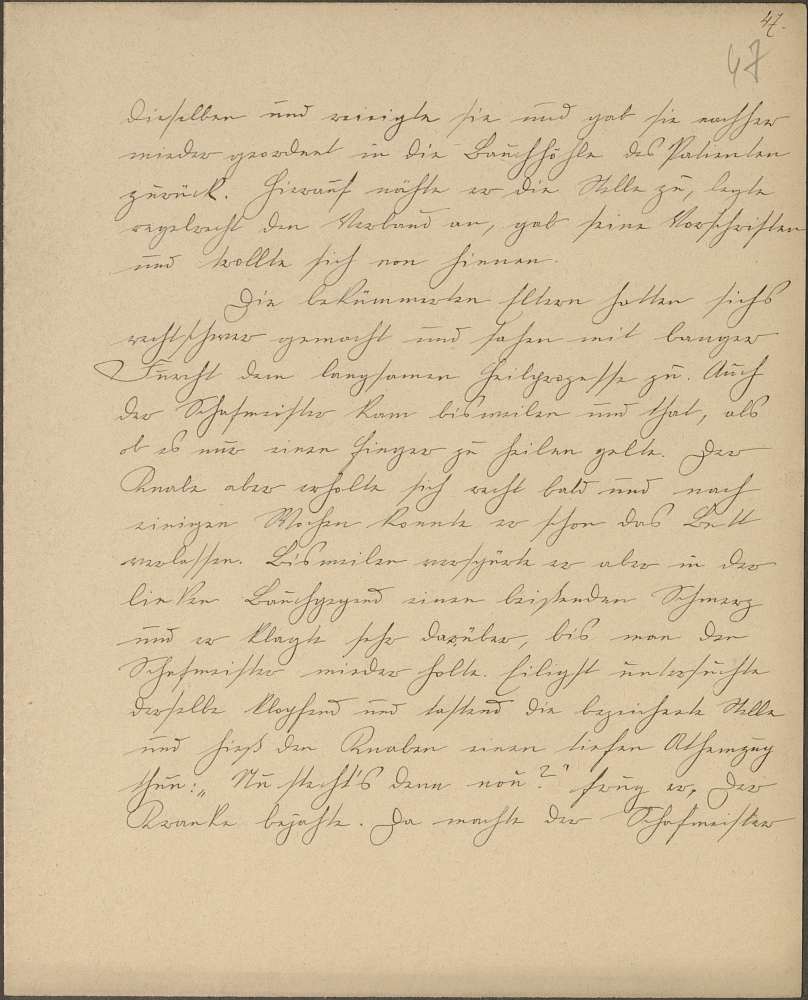 47.
47
dieselben und reinigte sie und gab sie nachher
wieder geordnet in die Bauchhöhle des Patienten
zurück. Hierauf nähte er die Stelle zu, legte
regelrecht den Verband an, gab seine Vorschriften
und trollte sich von hinnen.
Die bekümmerten Eltern hatten sichs
recht schwer gemacht und sahen mit banger
Furcht dem langsamen Heilprozesse zu. Auch
der Schafmeister kam bisweilen und that, als
ob es nur einen Finger zu heilen gelte. Der
Knabe aber erholte sich recht bald und nach
einigen Wochen konnte er schon das Bett
verlassen. Bisweilen verspürte er aber in der
linken Bauchgegend einen beißenden Schmerz
und er klagte sehr darüber, bis man den
Schafmeister wieder holte. Eiligst untersuchte
derselbe klopfend und tastend die bezeichnete Stelle
und hieß den Knaben einen tiefen Athemzug
thun: „Nu stecht's denn nou?" frug er. Der
Kranke bejahte. Da machte der Schafmeister